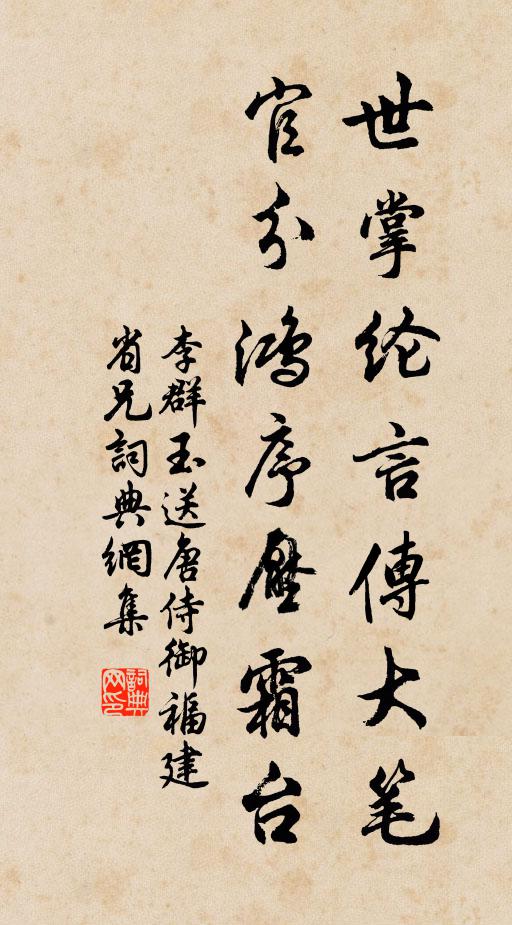 世掌纶言傳大笔
官分鴻序壓霜台
李群玉送唐侍御福建
省兄詞典網集
詞典网印